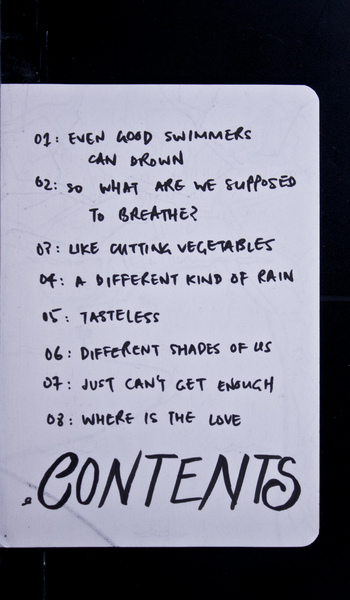 01: EVEN GOOD SWIMMERS
CAN DROWN
02: SO WHAT ARE WE SUPPOSED
TO BREATHE?
03: LIKE CUTTING VEGETABLES
04: A DIFFERENT KIND OF RAIN
05: TASTELESS
06: DIFFERENT SHADES OF US
07: JUST CAN'T GET ENOUGH
08: WHERE IS THE LOVE
CONTENTS